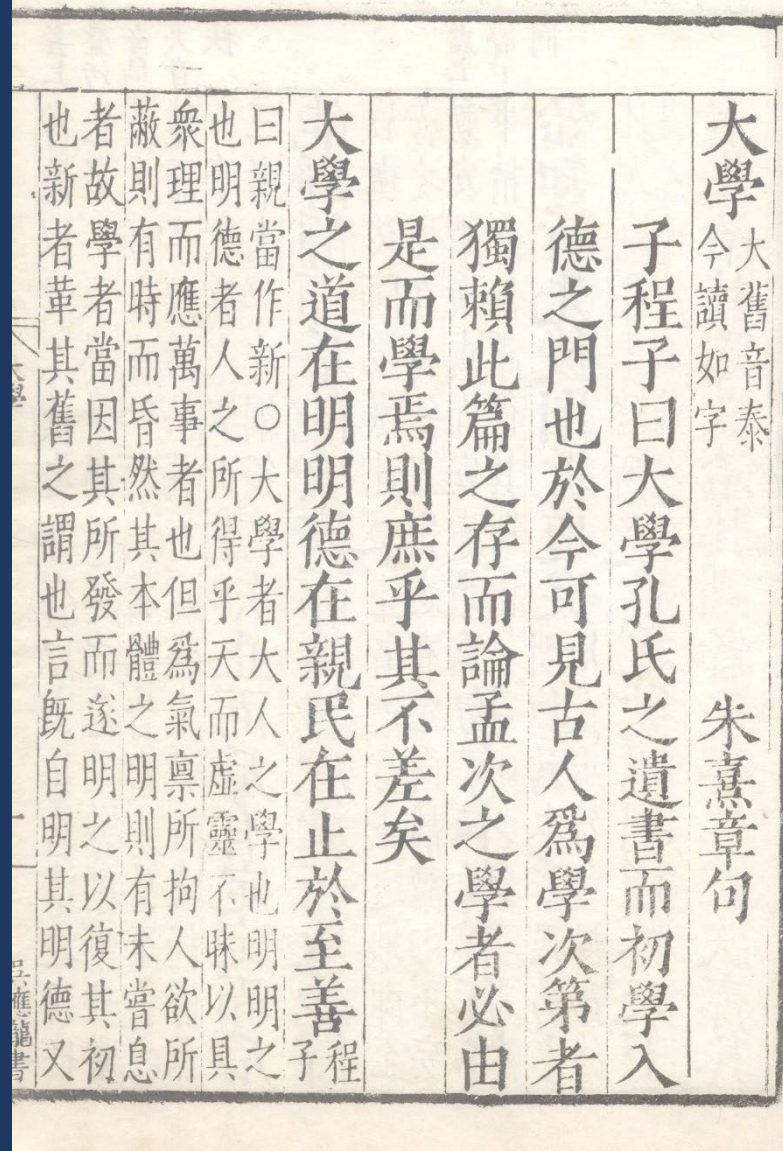 大學 大舊音泰
今讀如字 朱熹章句
子程子曰大學孔氏之遺書而初學入
德之門也於今可見古人爲學次第者
獨賴此篇之存而論孟次之學者必由
是而學焉則庶乎其不差矣
大學之道在明明德在親民在止於至善 程
子
曰親當作新○大學者大人之學也明明之
也明德者人之所得乎天而虛靈不昧以具
衆理而應萬事者也但爲氣禀所拘人欲所
蔽則有時而昏然其本體之明則有未嘗息
者故學者當因其所發而遂明之以復其初
也新者革其舊之謂也言旣自明其明德又
大學
一
吳應龍書